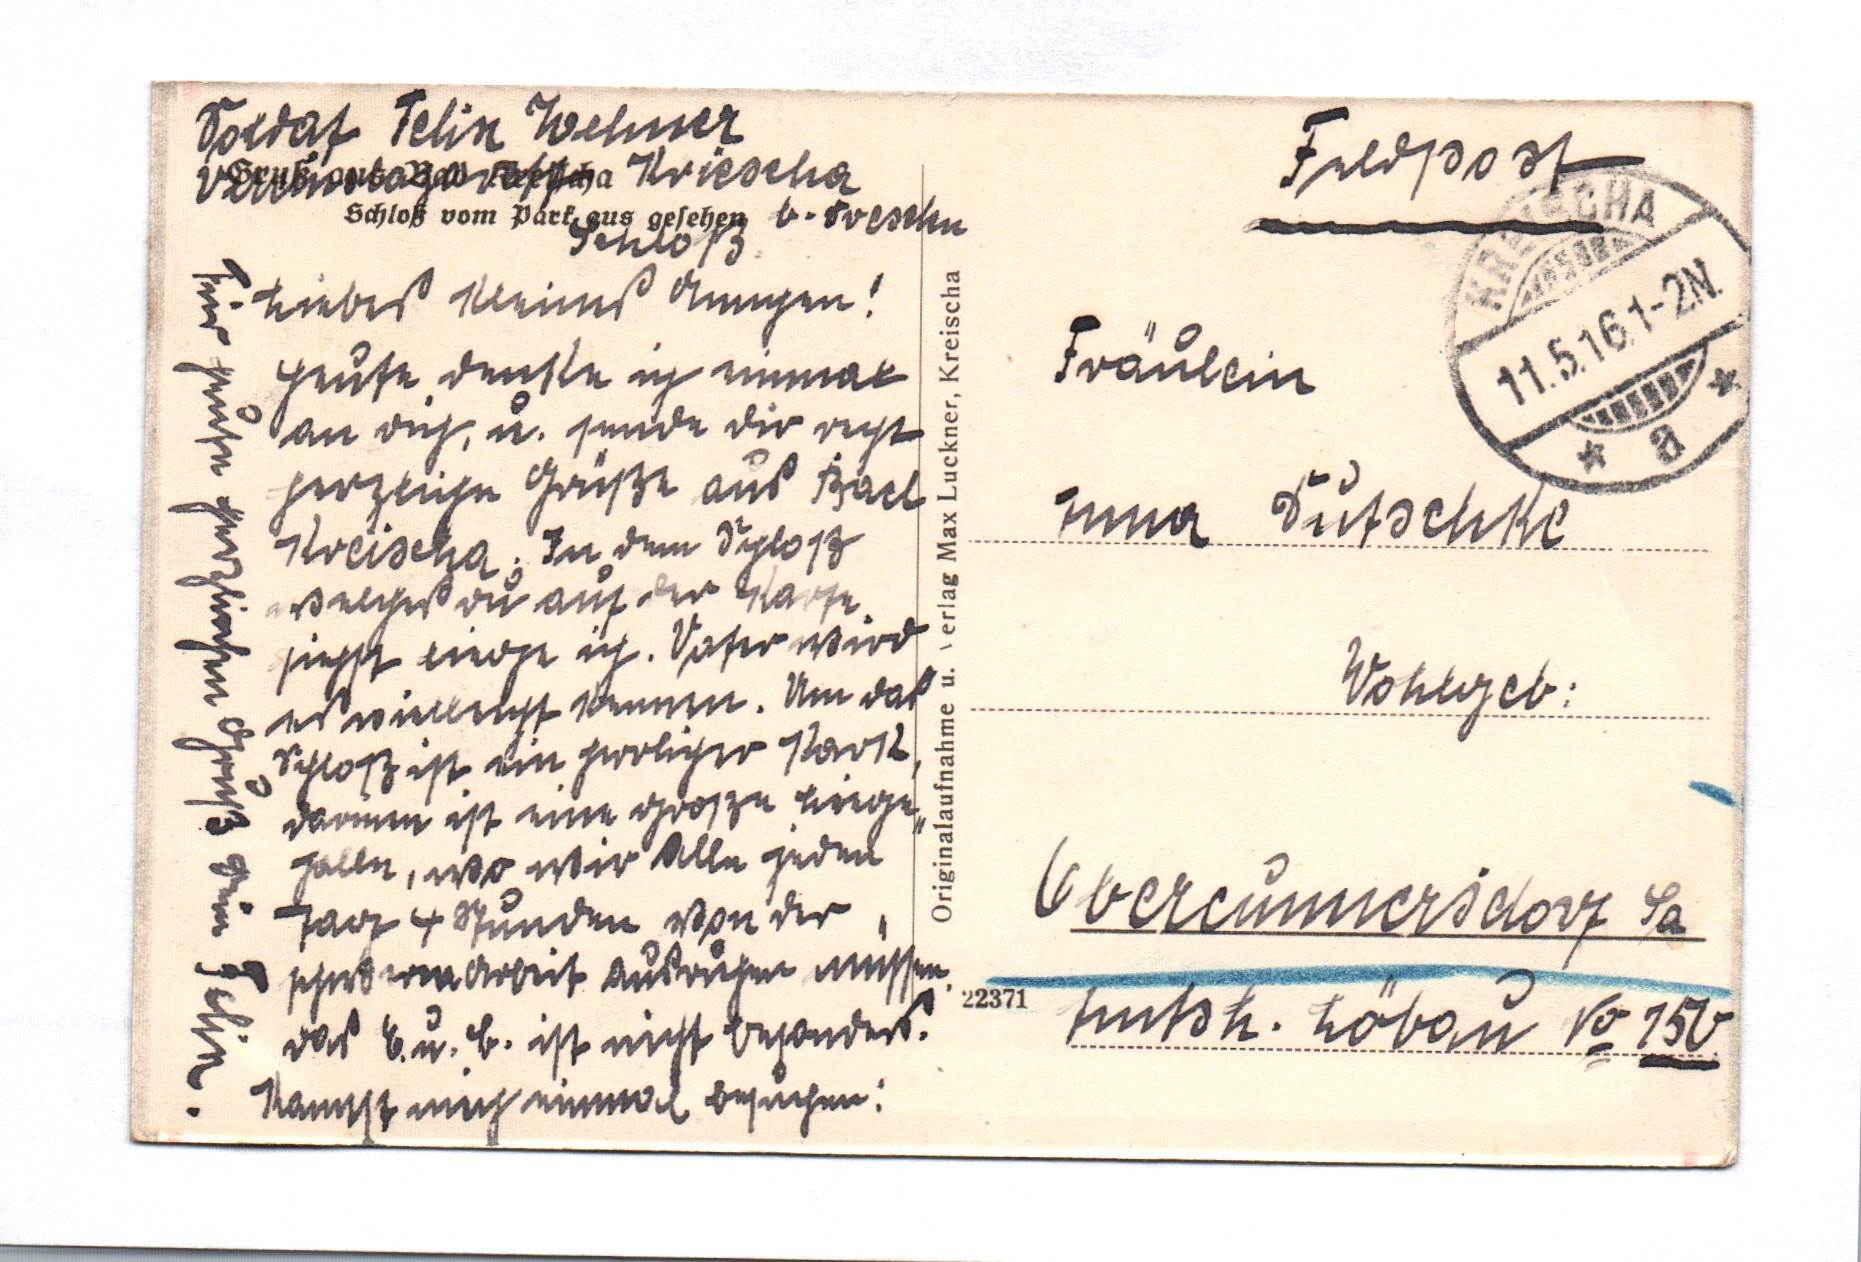 Soldat Felix Wehner
Vereinslazarett Kriescha
Gruß aus Bad Kreischa
Schloß vom Park aus gesehen
b. Dresden
Schloß.
Liebes kleines Anngen!
Heute denke ich einmal
an dich, u. sende dir recht
herzliche Grüße aus Bad
Kreischa. In dem Schloß
welches du auf der Karte
siehst liege ich. Vater wird
es vielleicht kennen. Um das
Schloß ist ein herrlicher Park,
darinnen ist eine große Liege„
halle, wo wir Alle jeden
Tag 4 Stunden von der
schweren Arbeit ausruhen müssen.
das E. u. E. ist nicht besonders.
Kannst mich einmal besuchen!
Für heute herzlichen Gruß dein Felix.
Originalaufnahme u. Verlag Max Luckner, Kreischa
22371
Feldpost
KREISCHA
11.5.16.1-2N.
* a *
Fräulein
Anna Dutschke
Wohlgeb:
Obercunnersdorf Sa
Amtsh. Löbau No 150